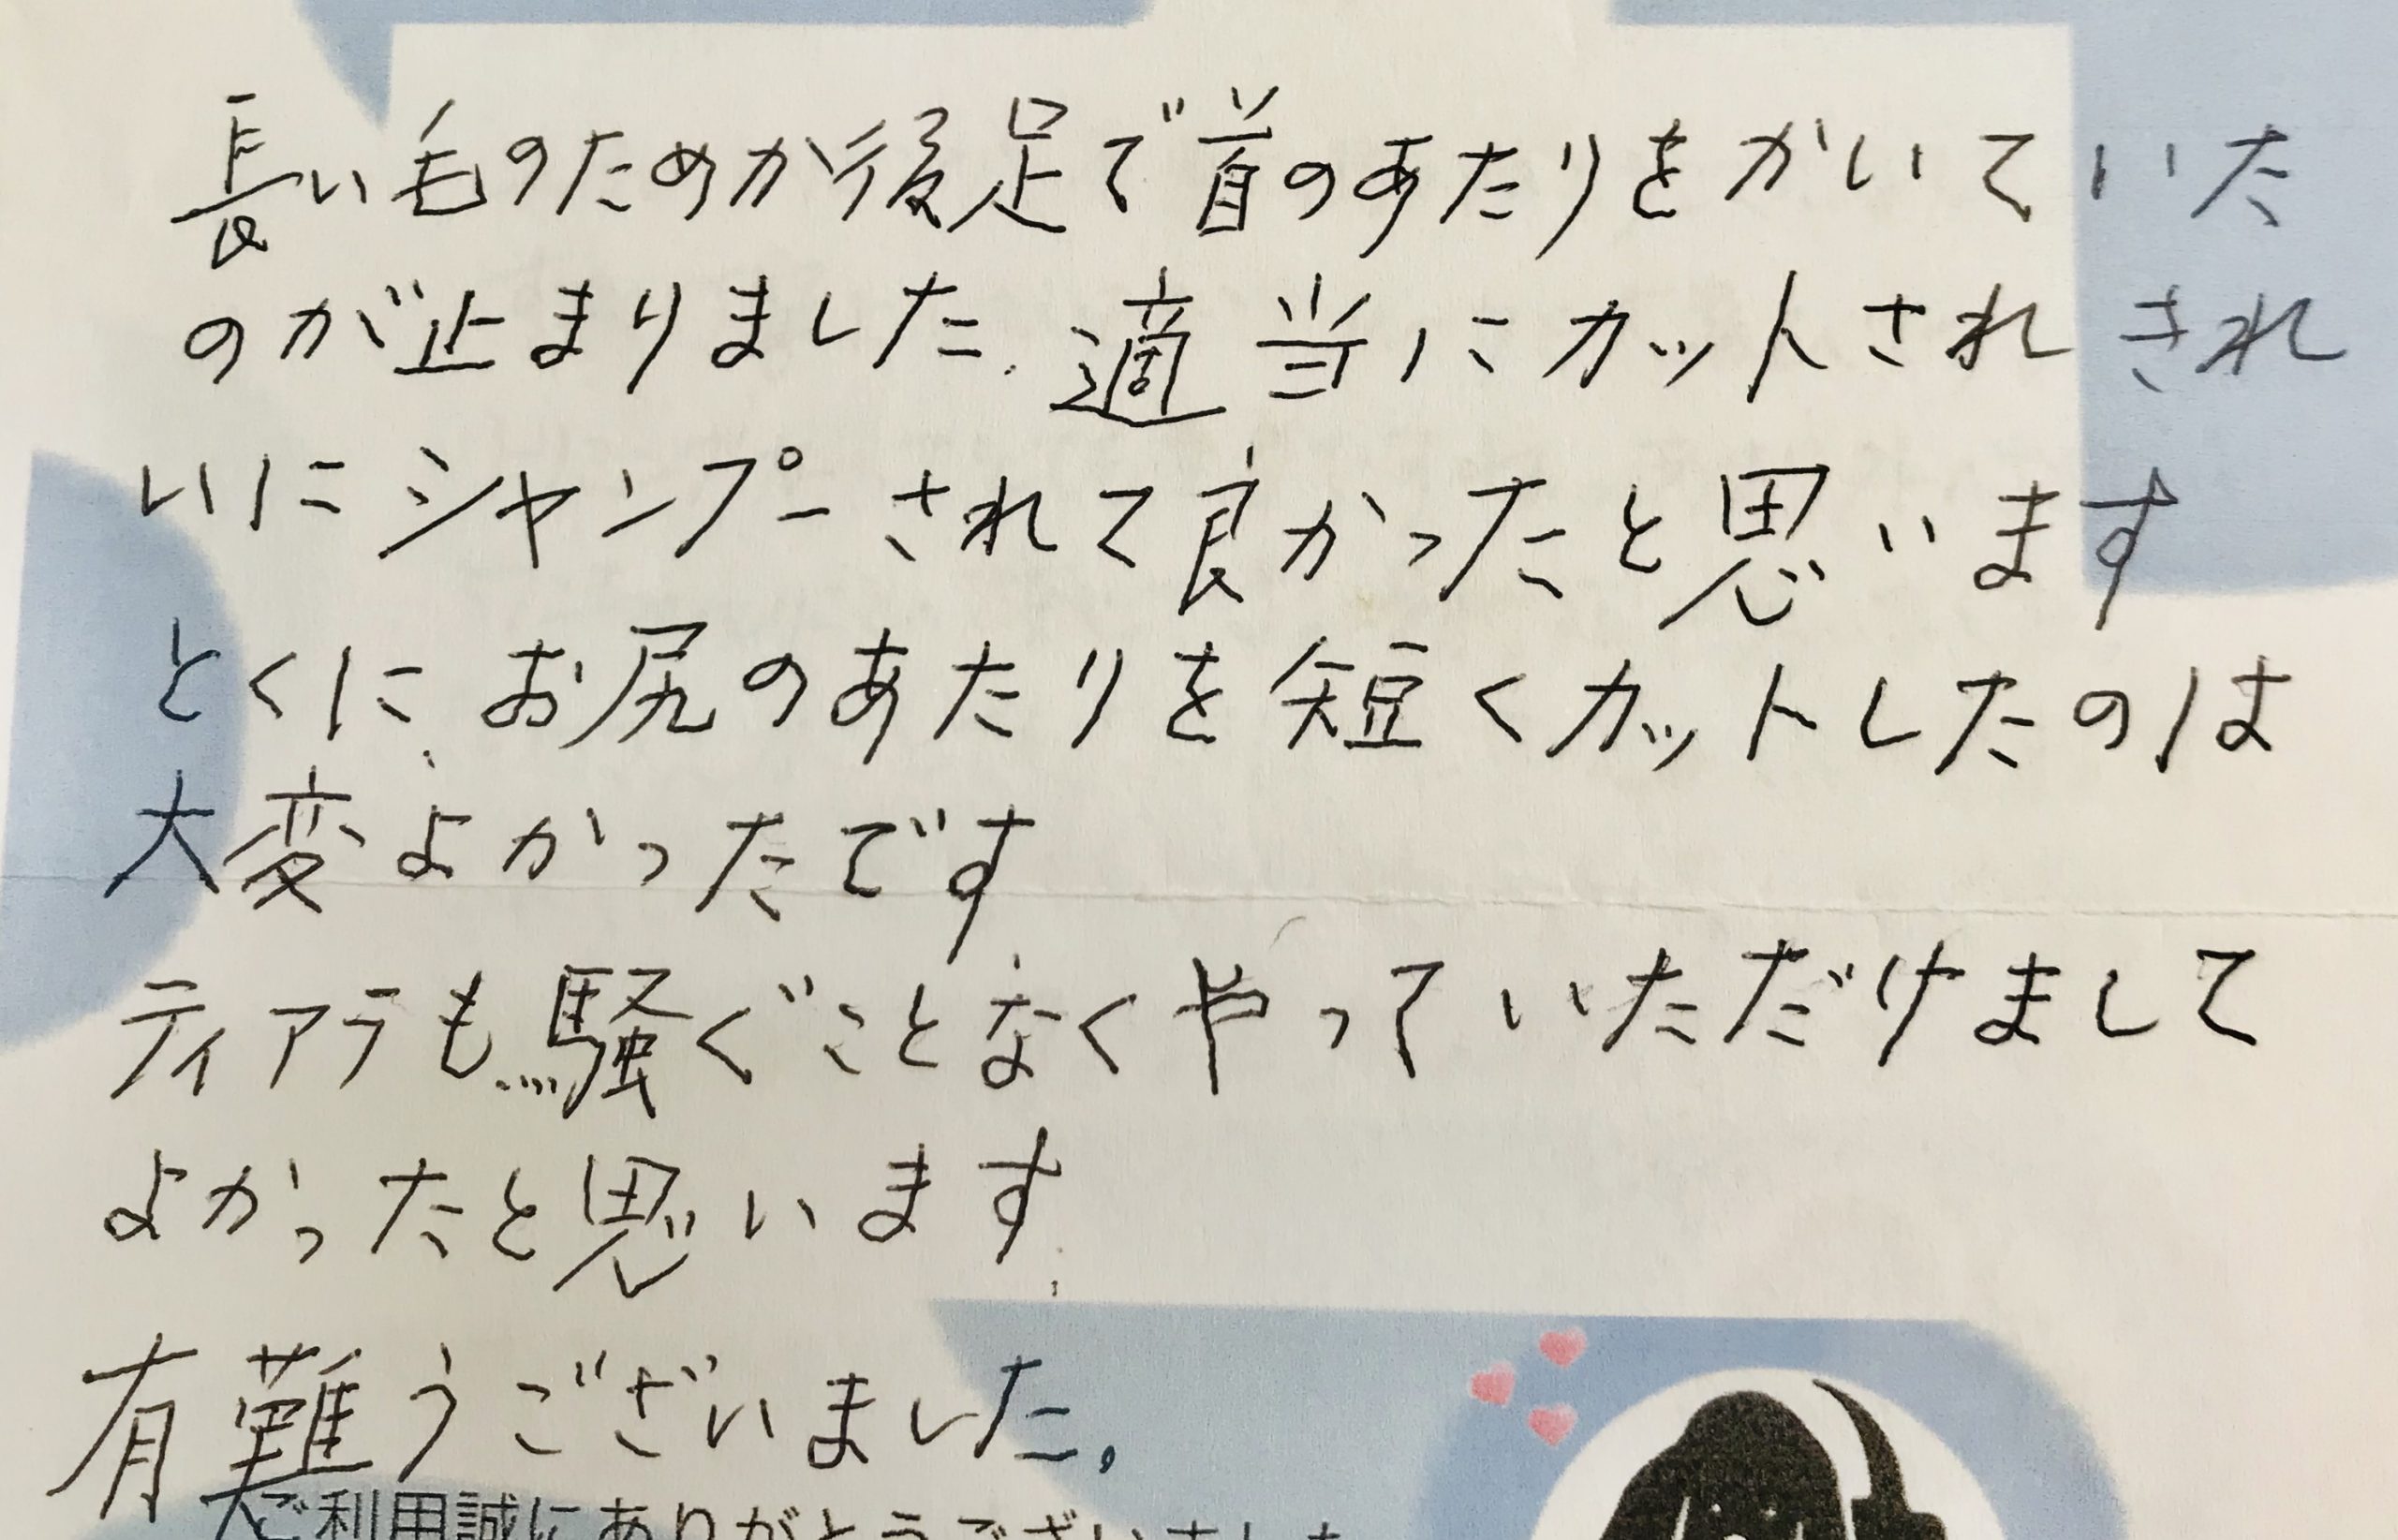 長い毛のためか後足で首のあたりをかいていた
のが止まりました.適当にカットされきれ
いにシャンプーされて良かったと思います
とくに、お尻のあたりを短くカットしたのは
大変よかったです
ティアラも騒ぐことなくやっていただけまして
よかったと思います.
有難うございました。
ご利用誠にありがとうございました